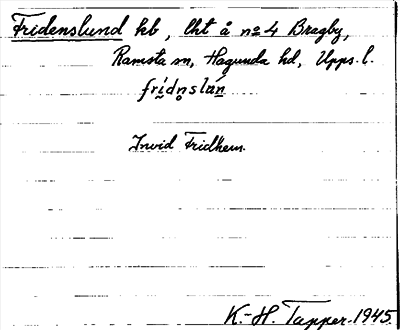 Fridenslund hb, lht å no 4 Bragby,
Ramsta sn, Hagunda hd, Upps. l.
frídn̥slán
Invid Fridhem.
K.-H. Tapper. 1945.